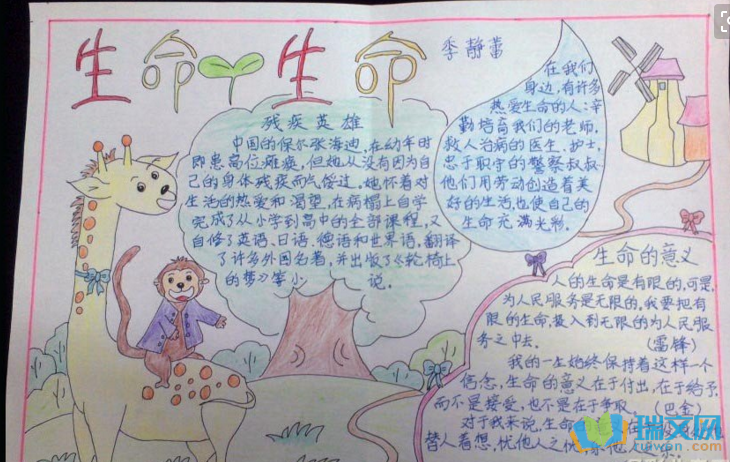 生命生命
季静蕾
残疾英雄
中国的保尔张海迪,在幼年时
即患高位瘫痪,但她从没有因为自
己的身体残疾而气馁过,她怀着对
生活的热爱和渴望,在病榻上自学
完成了从小学到高中的全部课程,又
自修了英语、日语、德语和世界语,翻译
了许多外国名著,并出版了《轮椅上
的梦》等小说。
在我们
身边,有许多
热爱生命的人:辛
勤培育我们的老师,
救人治病的医生、护士,
忠于职守的警察叔叔
他们用劳动创造着美
好的生活,也使自己的
生命充满光彩。
生命的意义
人的生命是有限的,可是,
为人民服务是无限的,我要把有
限的生命,投入到无限的为人民服
务之中去。(雷锋)
我的一生始终保持着这样一个
信念,生命的意义在于付出,在于给予,
而不是接受,也不是在于争取。(巴金)
对于我来说,生命
替人着想,忧他人之忧,
瑞文网